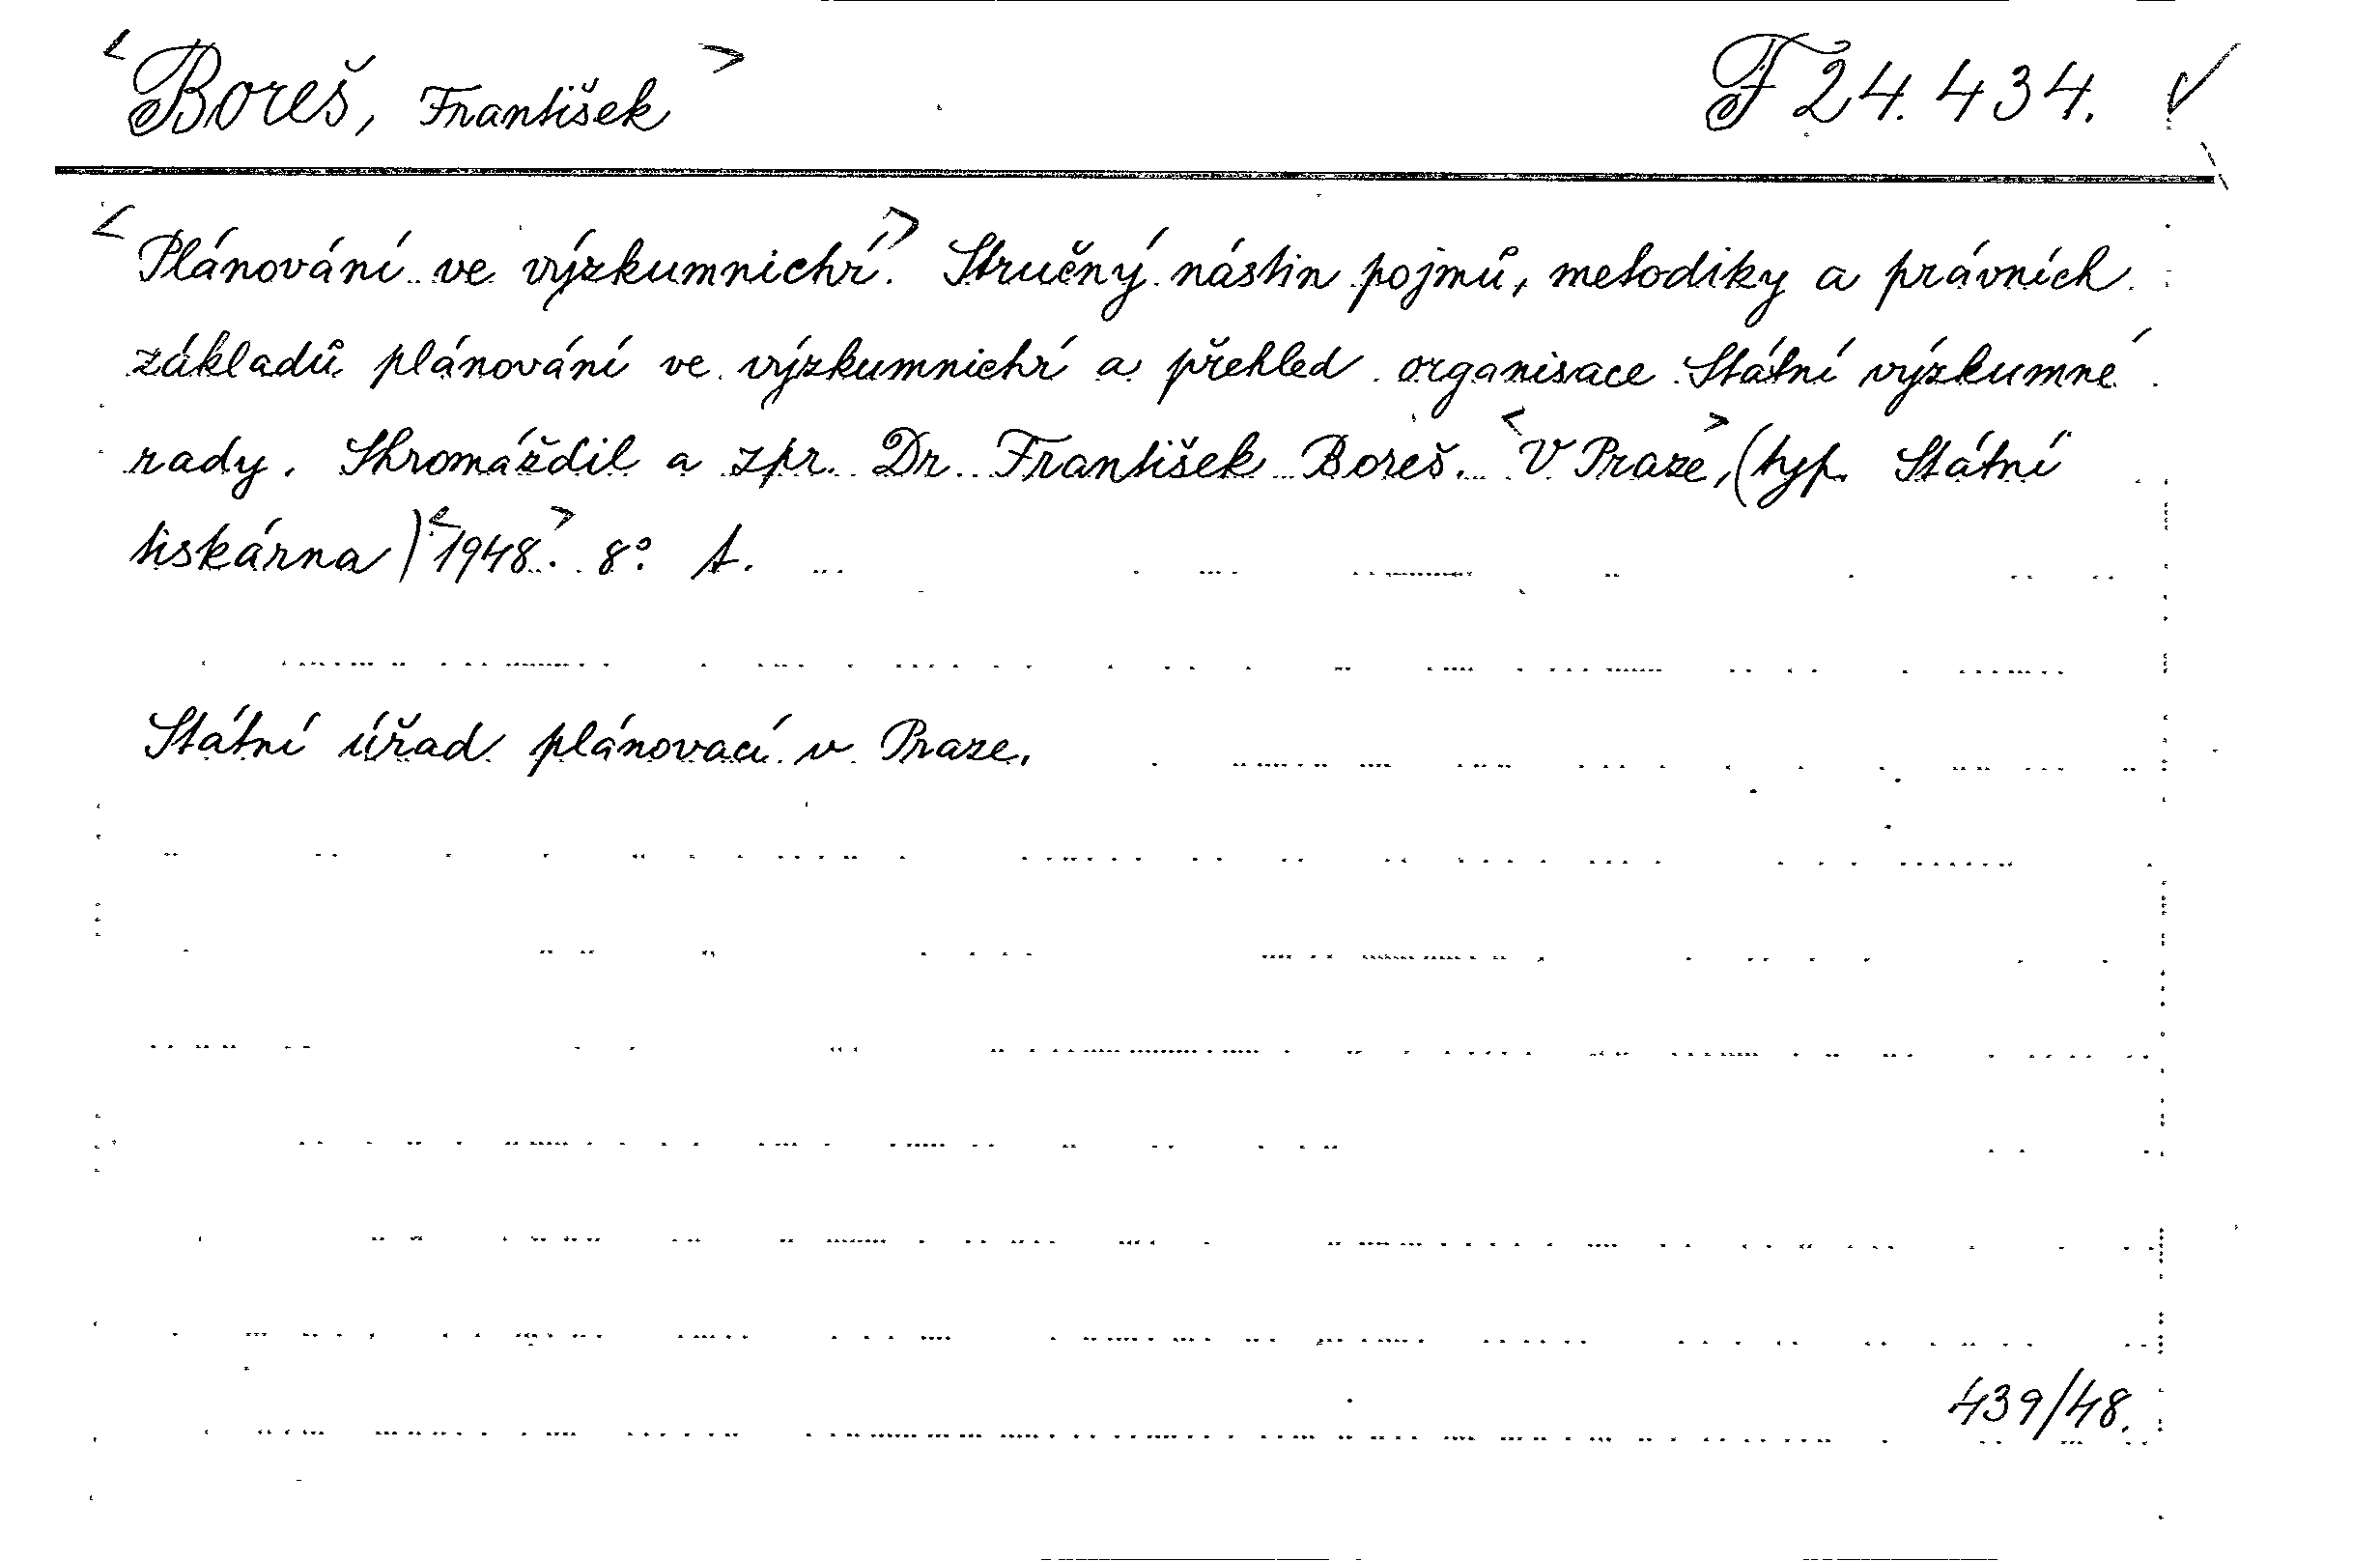 <Boreš, František> F 24.434. ✓
<Plánování ve výzkumnictví.> Stručný nástin pojmů, metodiky a právních
základů plánování ve výzkumnictví a přehled organisace Státní výzkumné
rady. Shromáždil a zpr. Dr. František Boreš. <V Praze>, (typ. Státní
tiskárna) <1948>. 8°. t.
Státní úřad plánovací v Praze.
439/48.